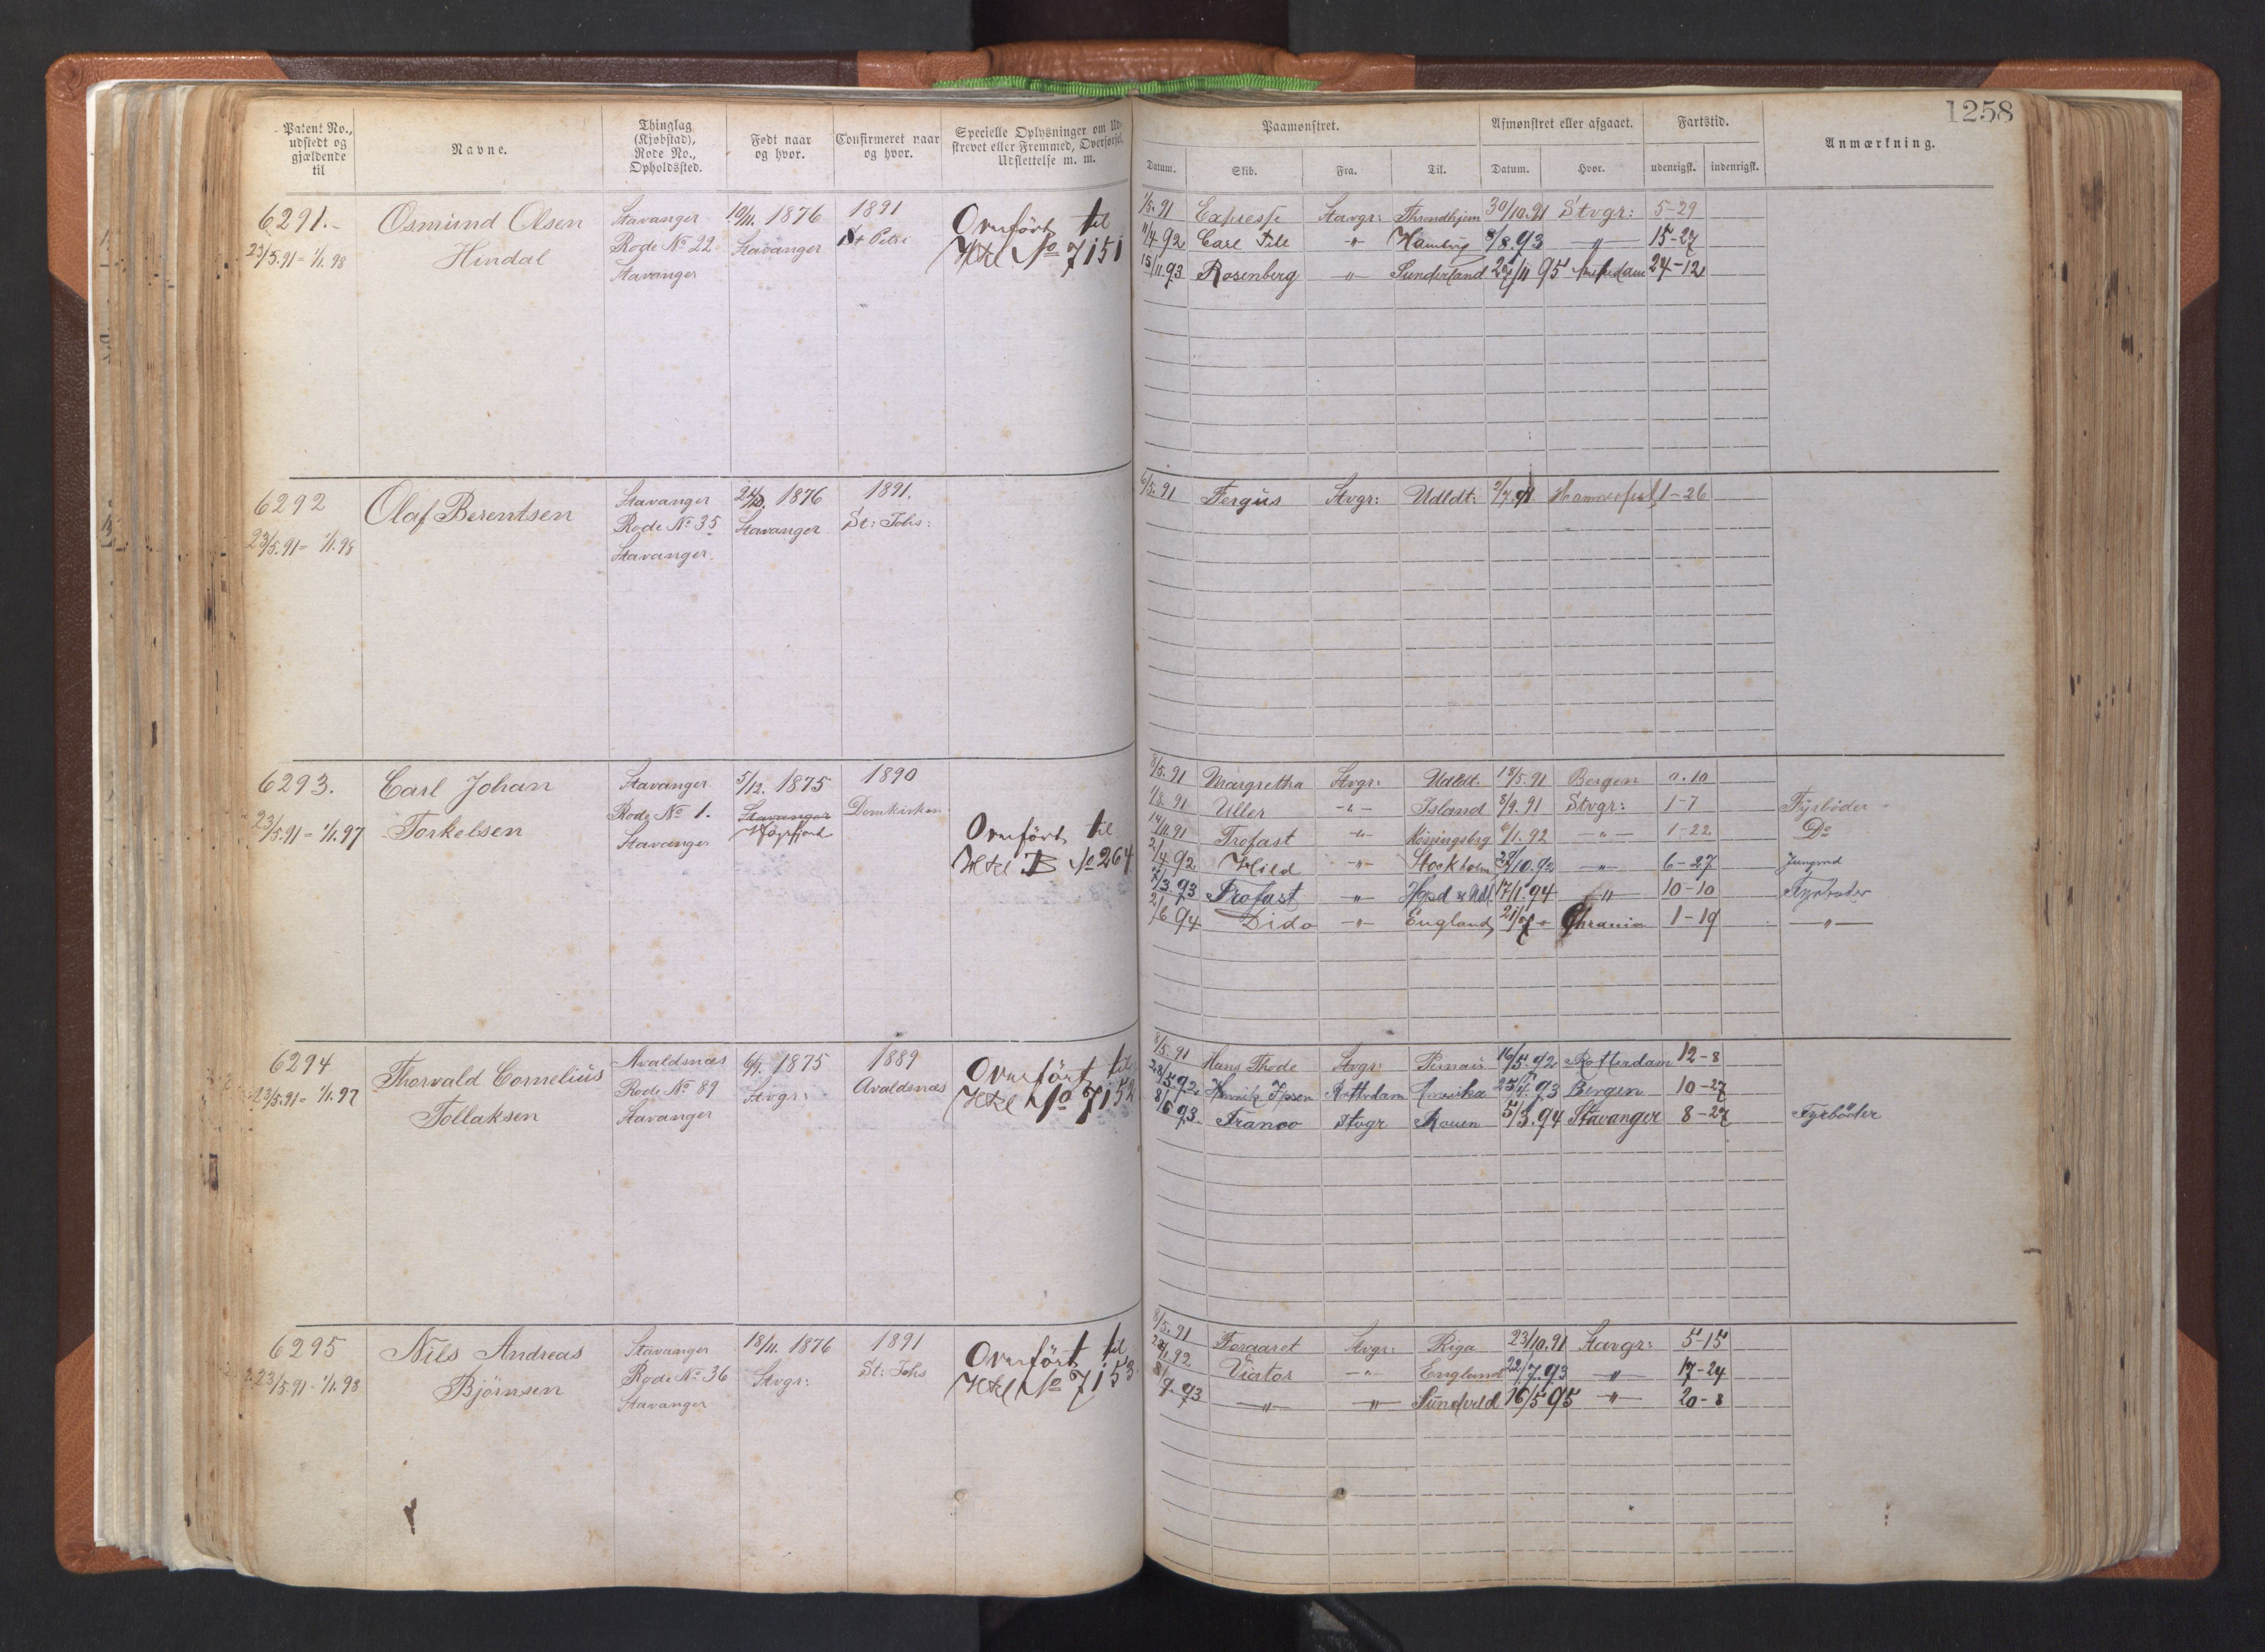 1258
Patent No., udstedt og gjældende til
Navne.
Thinglag (Kjøbstad), Rode No., Opholdssted.
Født naar og hvor.
Confirmeret naar og hvor.
Specielle Oplysninger om Ud-
strevet eller Fremmed, Overførsel,
Udslettelse m. m.
Paamønstret.
Afmønstret eller afgaaet.
Fartstid.
Anmærkning.
Datum. Skib. Fra. Til. Datum. Hvor. udenrigsk. indenrigsk.
6291.- Osmund Olsen Stavanger 10/11. 1876 1891 Overført til
23/5.91 - 1/1.98 Hindal Rode No 22 Stavanger St Petri Htl No 7151
Stavanger
1/5.91 Expresse Stavgr: Throndhjem 30/10.91 Stvgr: 5-29
11/4 92 Carl -"- Hamburg 8/8.93 -"- 15-27
15/11.93 Rosenberg -"- Sunderland 27/11 95 24-12
6292 Olaf Berentsen Stavanger 1876 1891.
23/5.91 - 1/1.98 Rode No 35 Stavanger St: Johs:
Stavanger.
6/5.91 Fergus Stvgr: Udldt: 2/7.91 Hammerfest 1-26
6293. Carl Johan Stavanger 5/12. 1875 1890
23/5.91 - 1/1.97 Torkelsen Rode No 1. Stavanger Domkirken
Stavanger Høgsfjord Overført til
Htl B No 264
8/5.91 Margretha Stvgr: Udldt. 18/5.91 Bergen 0.10
1/8.91 Uller -"- Island 8/9.91 Stvgr: 1-7 Fyrbøder
14/11.91 Trofast -"- Königsbrg 6/1.92 -"- 1-22 Do
2/4 92 Hild -"- Stockholm 29/10.92 -"- 6-27 Jungmd
7/3.93 Trofast -"- 17/1 94 -"- 10-10 Fyrbøder
2/6 94 Dido -"- England 21/7 -"- Chrania 1-19 -"-
6294 Thorvald Cornelius Avaldsnæs 6/1. 1875 1889 Overført til
23/5.91 - 1/1.97 Tollaksen Rode No 89 Stvgr: Avaldsnæs Htl No 7152
Stavanger
8/5.91 Hans Thode Stvgr: 16/5.92 Rotterdam 12-8
28/5.92 Henrik Ipsen Rotterdam Amerika 25/4.93 Bergen 10-27
8/6 93. Franco Stvgr Rouen 5/3.94 Stavanger 8-27 Fyrbøder
6295 Nils Andreas Stavanger 18/11. 1876 1891 Overført til
23/5.91 - 1/1.98 Bjørnsen Rode No 36 Stvgr: St: Johs Htl No 7153.
Stavanger
8/5.91 Foraaret Stvgr: Riga 23/10.91 Stavgr: 5-15
Viator -"- England 22/7.93 -"- 17-24
8/9.93 -"- -"- 16/5 95 -"- 20-8